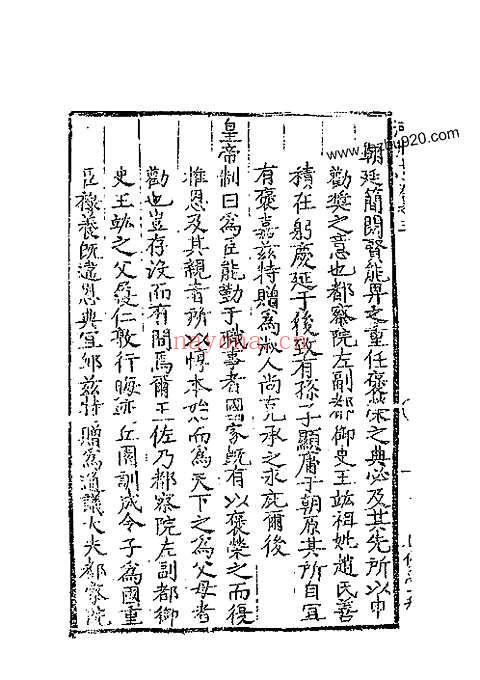 朝廷簡閱賢能畀之重任褒榮之典必及其先所以申
勸奨之意也都察院左副都御史王竑祖妣趙氏善
積在躬慶延于後致有孫子顯庸于朝原其所自宜
有褒嘉兹特贈為淑人尚克承之永庇爾後
皇帝制曰為臣能勤于職事者國家既有以褒榮之而復
惟恩及其親者所以惇本始而為天下之為父母者
勸也豈存没而有間焉爾王佐乃都察院左副都御
史王竑之父履仁敦行晦迹丘園訓成令子為國重
臣禄養既違恩典宜邺兹特贈為通議大夫都察院
nayona.cn